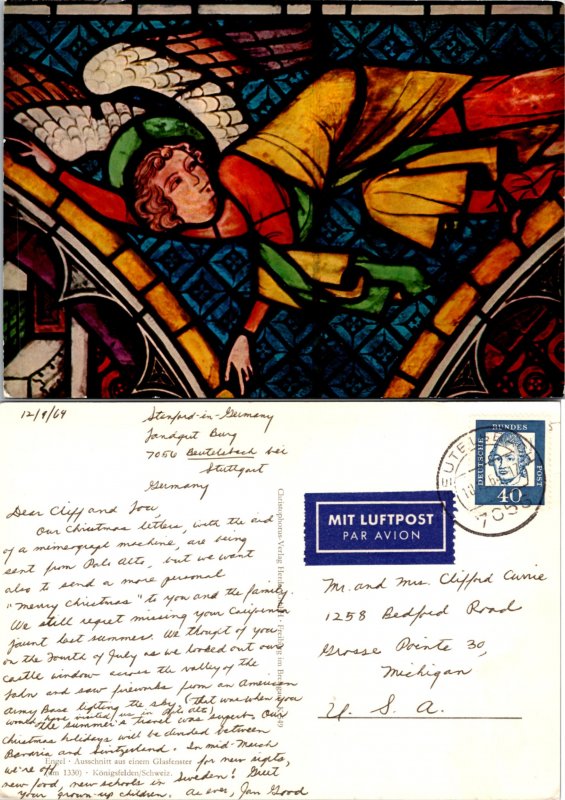 12/9/64
Stanford-in-Germany
Landgut Burg
7056 Beutelsbach bei
Stuttgart
Germany
Dear Cliff and Lou,
Our Christmas letters, with the aid
of a mimeograph machine, are being
sent from Palo Alto, but we want
also to send a more personal
"merry Christmas" to you and the family.
We still regret missing your California
jaunt last summer. We thought of you
on the Fourth of July as we looked out our
castle window across the valley of the
Lahn and saw fireworks from an American
Army Base lighting the sky (that was when you
would have visited us in Palo Alto)
The summer's travel was superb. Our
Christmas holidays will be divided between
Bavaria and Switzerland. In mid-March
we're off for new sights,
new food, new schools in Sweden! Greet
your grown-up children. As ever, Jan Good
Engel · Ausschnitt aus einem Glasfenster
(um 1330) · Königsfelden/Schweiz.
Christophorus-Verlag Freiburg im Breisgau
MIT LUFTPOST
PAR AVION
DEUTSCHE BUNDESPOST
40
BEUTELSBACH
7056
Mr. and Mrs. Clifford Currie
1258 Bedford Road
Grosse Pointe 30,
Michigan
U. S. A.